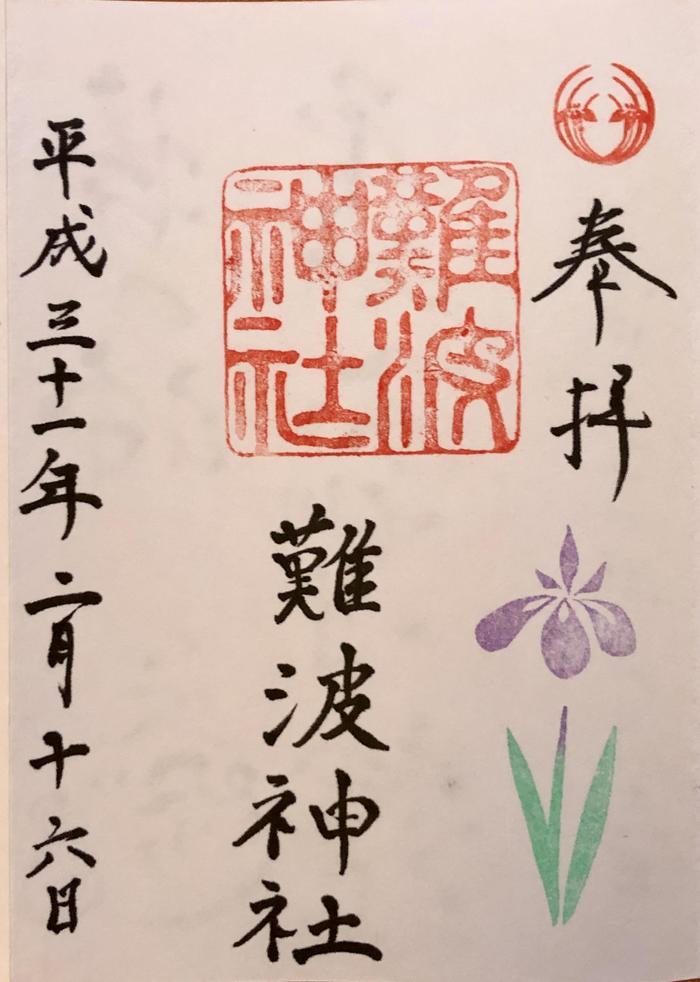 奉拝
難波神社
難波神社
平成三十一年二月十六日